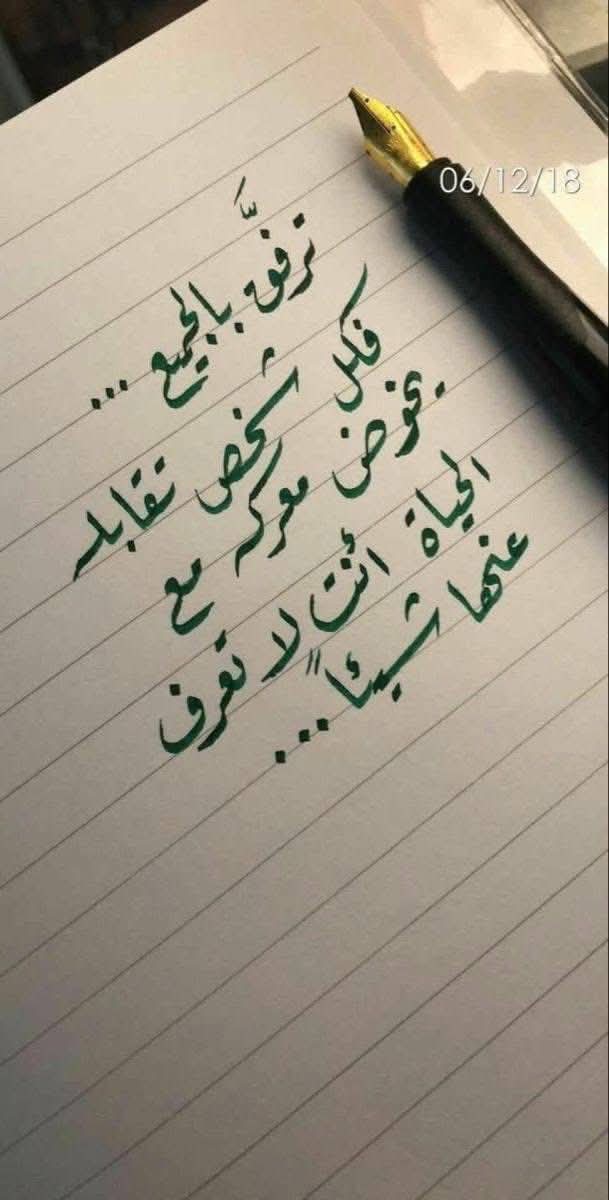 06/12/18
ترفَّق بالجميع ...
فكل شخص تقابله
يخوض معركه مع
الحياة أنت لا تعرف
عنها شيئاً ...